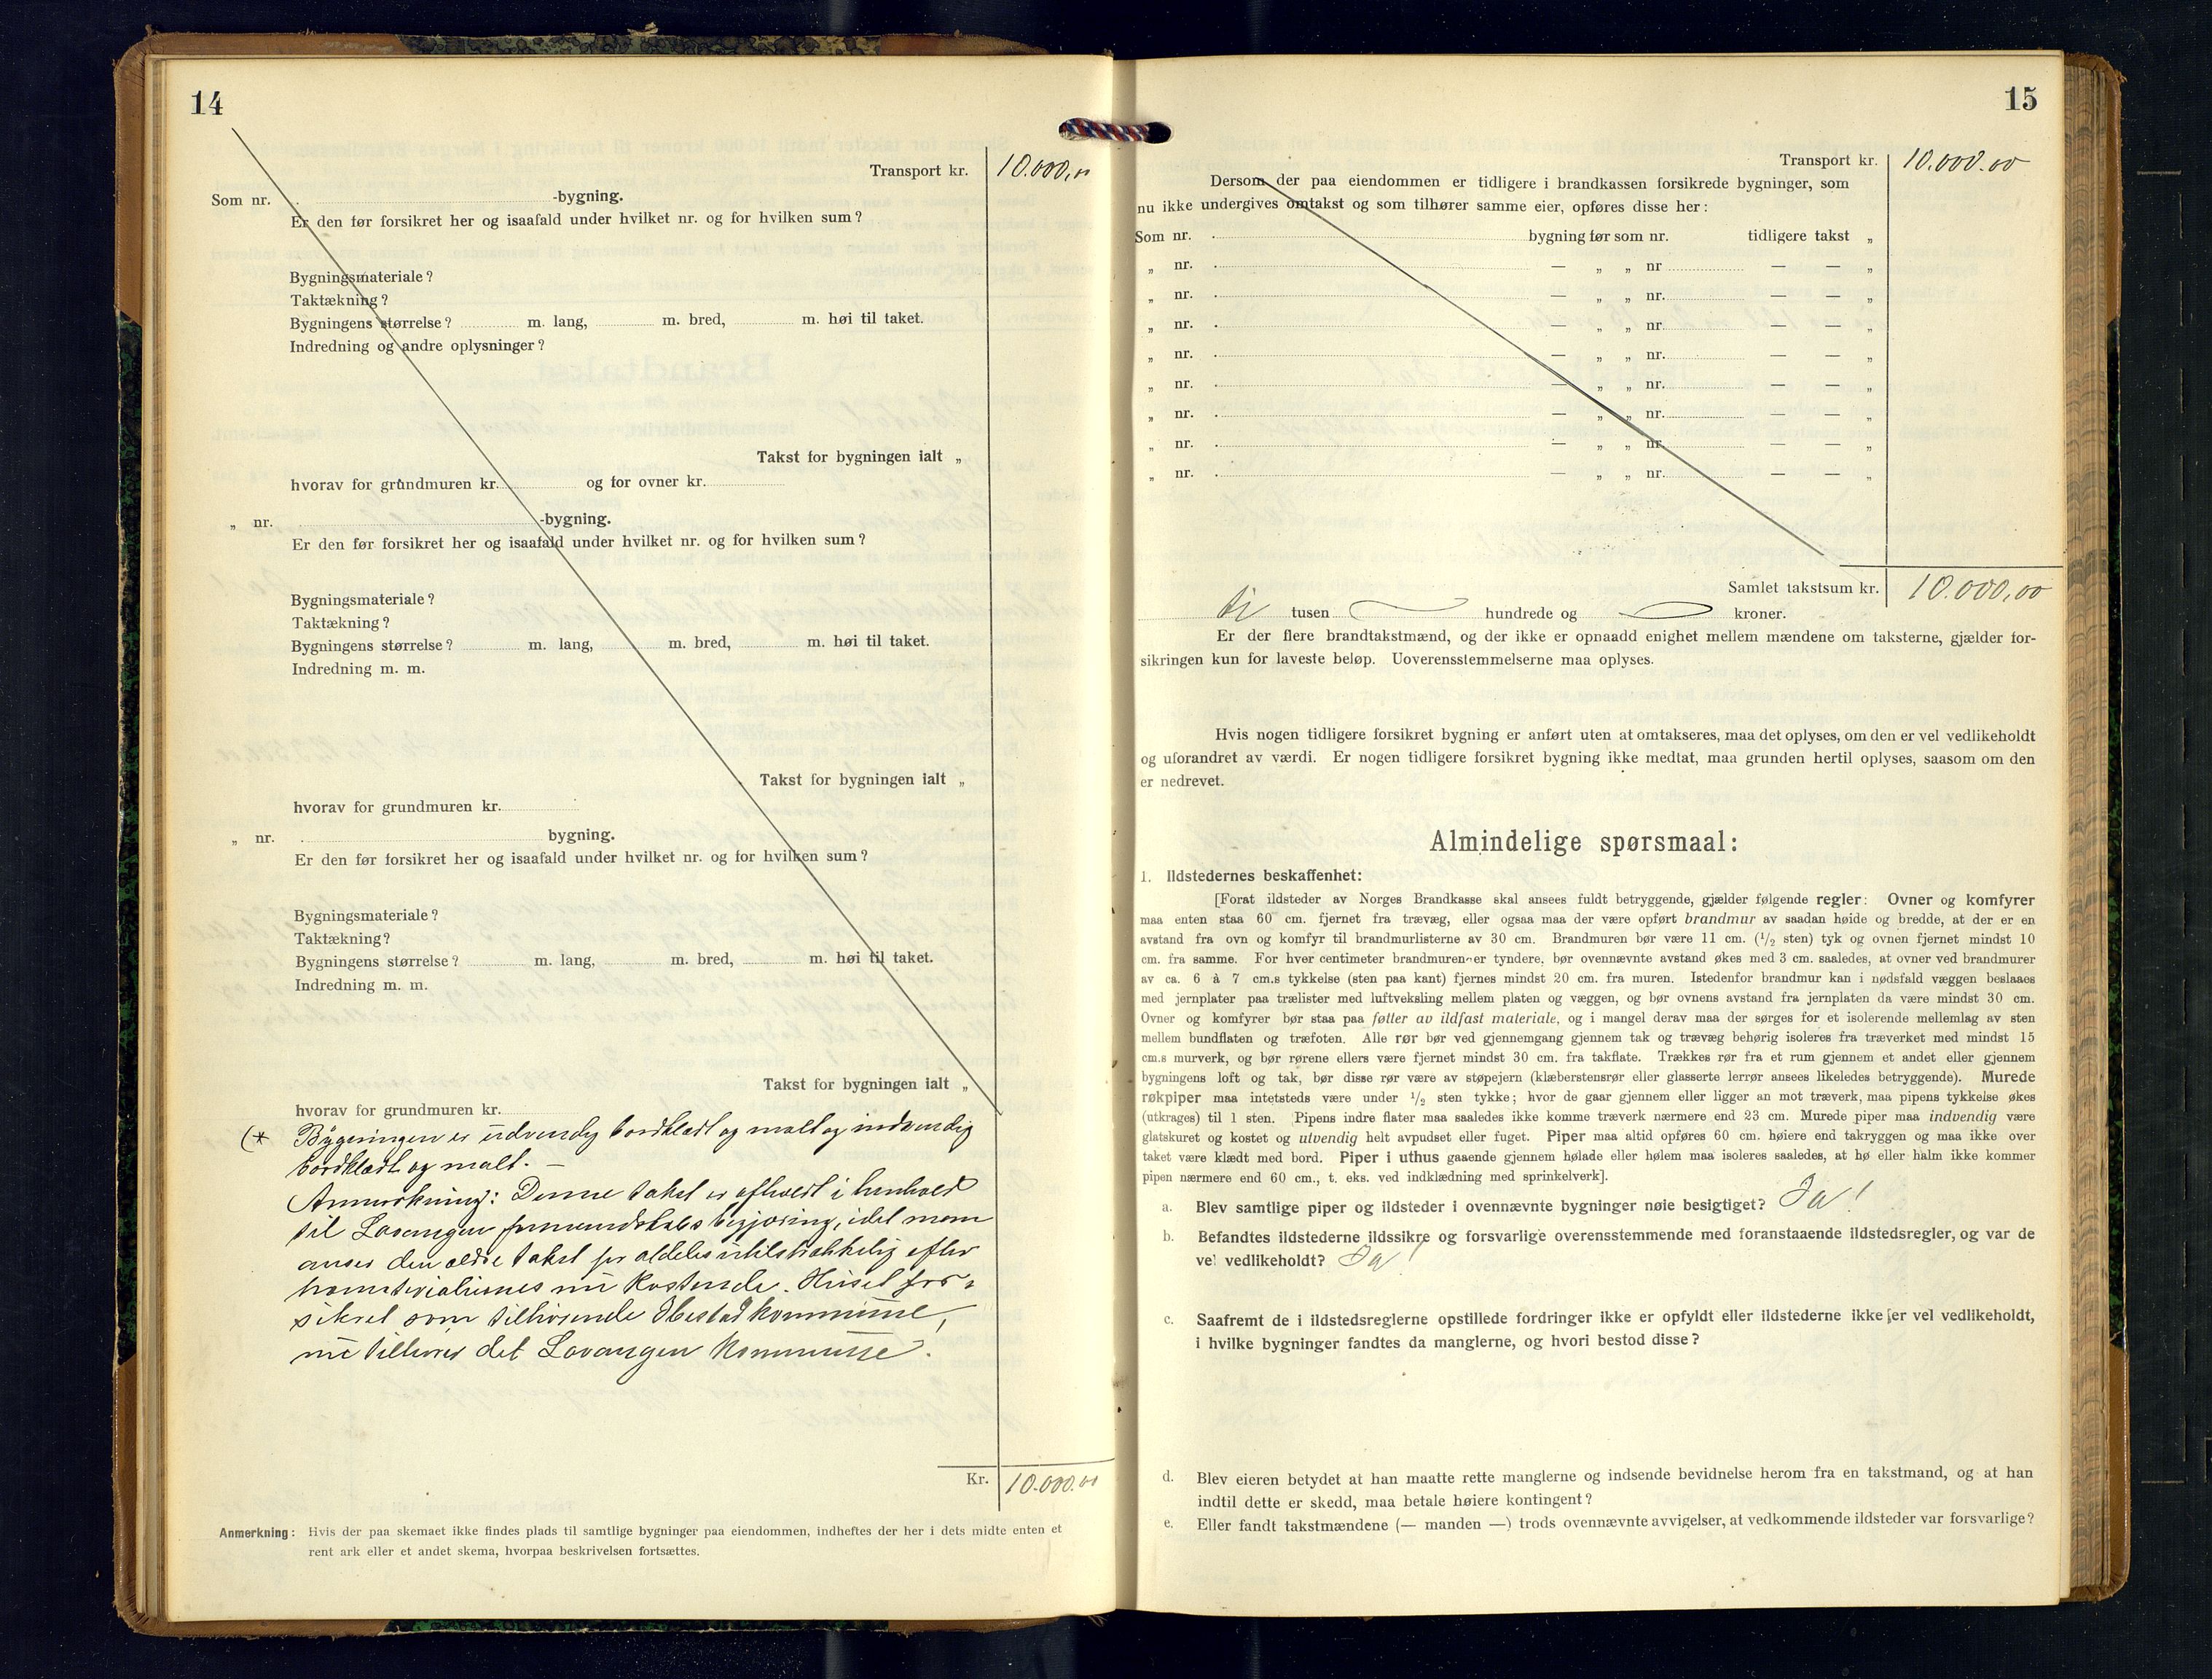 14
Transport kr. 10.000,00
Som nr. -bygning.
Er den før forsikret her og isaafald under hvilket nr. og for hvilken sum?
Bygningsmateriale?
Taktækning?
Bygningens størrelse? m. lang, m. bred, m. høi til taket.
Indredning og andre oplysninger?
Takst for bygningen ialt „
hvorav for grundmuren kr. og for ovner kr.
„ nr. -bygning.
Er den før forsikret her og isaafald under hvilket nr. og for hvilken sum?
Bygningsmateriale?
Taktækning?
Bygningens størrelse? m. lang, m. bred, m. høi til taket.
Indredning m. m.
Takst for bygningen ialt „
hvorav for grundmuren kr.
„ nr. bygning.
Er den før forsikret her og isaafald under hvilket nr. og for hvilken sum?
Bygningsmateriale?
Taktækning?
Bygningens størrelse? m. lang, m. bred, m. høi til taket.
Indredning m. m.
Takst for bygningen ialt „
hvorav for grundmuren kr.
(* Bygningen er udvendig bordklædt og malt og indvendig
bordklædt og malt. —
Anmerkning: Denne takst er afholdt i henhold
til Lavangen formandskabs begjæring, idet man
anser den ældre takst for aldeles utilstrækkelig efter
materialiernes nu kostende. Huset for-
sikret som tilhørende Ibestad kommune,
nu tilhører det Lavangen kommune.
Kr. 10.000.00
Anmerkning: Hvis der paa skemaet ikke findes plads til samtlige bygninger paa eiendommen, indheftes der her i dets midte enten et
rent ark eller et andet skema, hvorpaa beskrivelsen fortsættes.
15
Transport kr. 10.000.00
Dersom der paa eiendommen er tidligere i brandkassen forsikrede bygninger, som
nu ikke undergives omtakst og som tilhører samme eier, opføres disse her:
Som nr. bygning før som nr. tidligere takst „
„ nr. — „ „ nr — — „
„ nr. — „ „ nr. — — „
„ nr. — „ „ nr. — — „
„ nr. — „ „ nr. — — „
„ nr. — „ „ nr. — — „
„ nr. — „ „ nr. — — „
„ nr. — „ „ nr. — — „
„ nr. — „ „ nr. — — „
Samlet takstsum kr. 10.000,00
ti tusen hundrede og kroner.
Er der flere brandtakstmænd, og der ikke er opnaadd enighet mellem mændene om taksterne, gjælder for-
sikringen kun for laveste beløp. Uoverensstemmelserne maa oplyses.
Hvis nogen tidligere forsikret bygning er anført uten at omtakseres, maa det oplyses, om den er vel vedlikeholdt
og uforandret av værdi. Er nogen tidligere forsikret bygning ikke medtat, maa grunden hertil oplyses, saasom om den
er nedrevet.
Almindelige spørsmaal:
1. Ildstedernes beskaffenhet:
[Forat ildsteder av Norges Brandkasse skal ansees fuldt betryggende, gjælder følgende regler: Ovner og komfyrer
maa enten staa 60 cm. fjernet fra trævæg, eller ogsaa maa der være opført brandmur av saadan høide og bredde, at der er en
avstand fra ovn og komfyr til brandmurlisterne av 30 cm. Brandmuren bør være 11 cm. (1/2 sten) tyk og ovnen fjernet mindst 10
cm. fra samme. For hver centimeter brandmuren er tyndere, bør ovennævnte avstand økes med 3 cm. saaledes, at ovner ved brandmurer
av ca. 6 à 7 cm.s tykkelse (sten paa kant) fjernes mindst 20 cm. fra muren. Istedenfor brandmur kan i nødsfald væggen beslaaes
med jernplater paa trælister med luftveksling mellem platen og væggen, og bør ovnens avstand fra jernplaten da være mindst 30 cm.
Ovner og komfyrer bør staa paa føtter av ildfast materiale, og i mangel derav maa der sørges for et isolerende mellemlag av sten
mellem bundflaten og træfoten. Alle rør bør ved gjennemgang gjennem tak og trævæg behørig isoleres fra træverket med mindst 15
cm.s murverk, og bør rørene ellers være fjernet mindst 30 cm. fra takflate. Trækkes rør fra et rum gjennem et andet eller gjennem
bygningens loft og tak, bør disse rør være av støpejern (klæberstensrør eller glasserte lerrør ansees likeledes betryggende). Murede
røkpiper maa intetsteds være under 1/2 sten tykke; hvor de gaar gjennem eller ligger an mot træverk, maa pipens tykkelse økes
(utkrages) til 1 sten. Pipens indre flater maa saaledes ikke komme træverk nærmere end 23 cm. Murede piper maa indvendig være
glatskuret og kostet og utvendig helt avpudset eller fuget. Piper maa altid opføres 60 cm. høiere end takryggen og maa ikke over
taket være klædt med bord. Piper i uthus gaaende gjennem hølade eller hølem maa isoleres saaledes, at hø eller halm ikke kommer
pipen nærmere end 60 cm., t. eks. ved indklædning med sprinkelverk].
a. Blev samtlige piper og ildsteder i ovennævnte bygninger nøie besigtiget? Ja!
b. Befandtes ildstederne ildssikre og forsvarlige overensstemmende med foranstaaende ildstedsregler, og var de
vel vedlikeholdt? Ja!
c. Saafremt de i ildstedsreglerne opstillede fordringer ikke er opfyldt eller ildstederne ikke er vel vedlikeholdt,
i hvilke bygninger fandtes da manglerne, og hvori bestod disse?
d. Blev eieren betydet at han maatte rette manglerne og indsende bevidnelse herom fra en takstmand, og at han
indtil dette er skedd, maa betale høiere kontingent?
e. Eller fandt takstmændene (— manden —) trods ovennævnte avvigelser, at vedkommende ildsteder var forsvarlige?